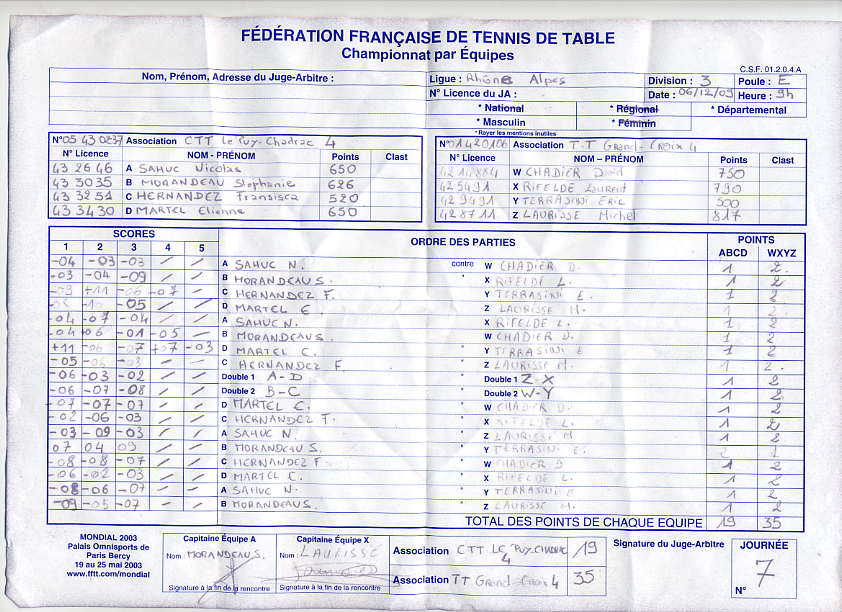 FÉDÉRATION FRANÇAISE DE TENNIS DE TABLE
Championnat par Équipes
C.S.F. 01.2.0.4.A
Nom, Prénom, Adresse du Juge-Arbitre :
Ligue : Rhône Alpes
Division : 3
Poule : E
N° Licence du JA :
Date : 06/12/09
Heure : 9h
* National
* Régional
* Départemental
* Masculin
* Féminin
* Rayer les mentions inutiles
N° 05 43 0237 Association CTT Le Puy-Chadrac 4
N° Licence NOM - PRÉNOM Points Clast
43 26 46 A SAHUC Nicolas 650
43 30 35 B MORANDEAU Stephanie 626
43 32 51 C HERNANDEZ Fransisca 520
43 34 30 D MARTEL Etienne 650
N° 01420106 Association T.T Grand-Croix 4
N° Licence NOM - PRÉNOM Points Clast
W CHADIER David 750
425491 X RIFELDE Laurent 790
429491 Y TERRASINI Eric 500
428711 Z LAURISSE Michel 817
SCORES ORDRE DES PARTIES POINTS
1 2 3 4 5 ABCD WXYZ
-04 -03 -03 / / A SAHUC N. contre W CHADIER D. 1 2
-03 -04 -09 / / B MORANDEAU S. " X RIFELDE L. 1 2
-09 +11 -06 -07 / C HERNANDEZ F. " Y TERRASINI E. 1 2
-05 / / D MARTEL E. " Z LAURISSE M. 1 2
-04 -07 -04 / / A SAHUC N. " X RIFELDE L. 1 2
-04 +06 -01 -05 / B MORANDEAU S. " W CHADIER D. 1 2
+11 -06 -07 +07 -03 D MARTEL E. " Y TERRASINI E 1 2
-05 -03 / / C HERNANDEZ F. " Z LAURISSE M. 1 2
-06 -03 -02 / / Double 1 A-D " Double 1 Z-X 1 2
-06 -07 -08 / / Double 2 B-C " Double 2 W-Y 1 2
-07 -07 -07 / / D MARTEL E. " W CHADIER D. 1 2
-02 -06 -03 / / C HERNANDEZ F. " X RIFELDE L. 1 2
-03 -09 -03 / / A SAHUC N. " Z LAURISSE M 1 2
07 04 09 / / B MORANDEAU S. " Y TERRASINI E. 2 1
-08 -08 -07 / / C HERNANDEZ F. " W CHADIER D 1 2
-06 -02 -03 / / D MARTEL E. " X RIFELDE L. 1 2
-08 -06 -07 / / A SAHUC N. " Y TERRASINI E 1 2
-09 -05 -07 / / B MORANDEAU S. " Z LAURISSE M. 1 2
TOTAL DES POINTS DE CHAQUE EQUIPE 19 35
MONDIAL 2003
Palais Omnisports de
Paris Bercy
19 au 25 mai 2003
www.fftt.com/mondial
Capitaine Équipe A
Nom : MORANDEAU S.
Signature à la fin de la rencontre
Capitaine Équipe X
Nom : LAURISSE
Signature à la fin de la rencontre
Association CTT LE PUY-CHADRAC 4 19
Association TT Grand Croix 4 35
Signature du Juge-Arbitre
JOURNÉE
N° 7